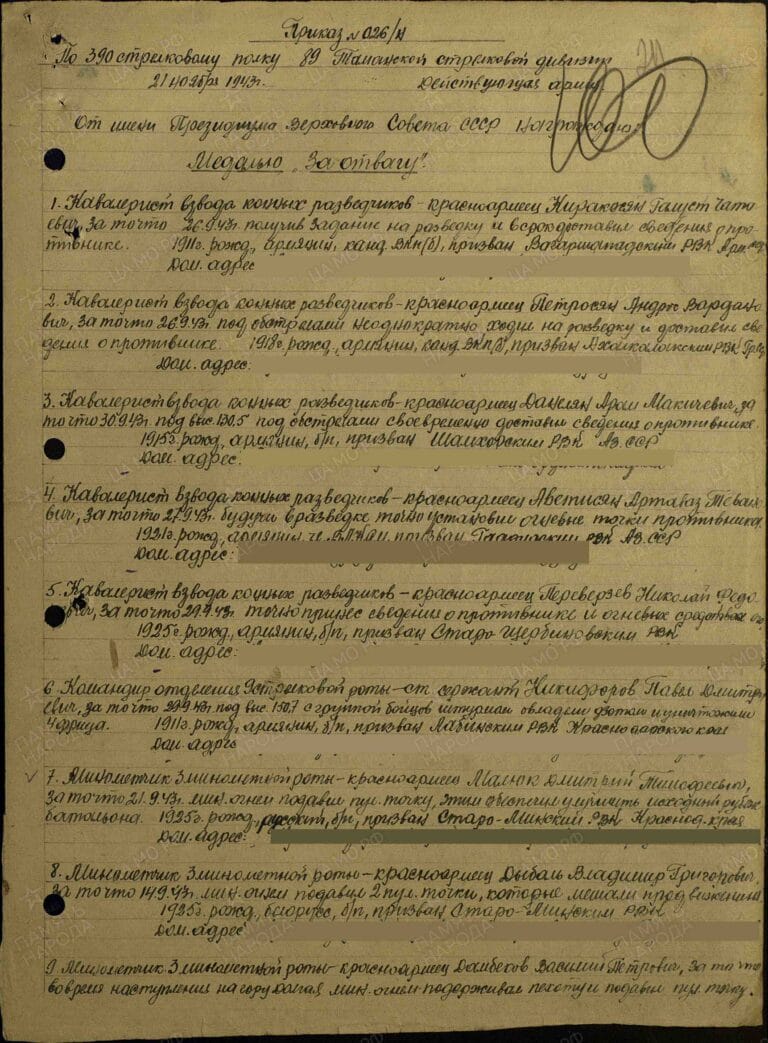 Приказ № 026/н
По 390 стрелковому полку 89 Таманской стрелковой дивизии
21 ноября 1943г. Действующая армия
От имени Президиума Верховного Совета СССР награждаю:
Медалью „За отвагу".
1. Кавалерист взвода конных разведчиков - красноармеец Киракосян Галуст
евич, за то что 26.9.43г. получив задание на разведку и в срок доставил сведения о про-
тивнике. 1911г. рожд., армянин, канд. ВКП(б), призван Вагаршападским РВК
Дом. адрес
2. Кавалерист взвода конных разведчиков - красноармеец Петросян Андрос Вардано
вич, за то что 26.9.43г. под обстрелами неоднократно ходил на разведку и доставил све
дения о противнике. 1918г. рожд., армянин, канд. ВКП(б), призван Ахалкалакским РВК
Дом. адрес:
3. Кавалерист взвода конных разведчиков - красноармеец Данелян Арам Макичевич, за
то что 30.9.43г. под выс. 130.5 под обстрелами своевременно доставил сведения о противнике.
1915г. рожд., армянин, б/п, призван Шамхорским РВК Аз.ССР
Дом. адрес.
4. Кавалерист взвода конных разведчиков - красноармеец Аветисян Артаваз
вич, за то что 27.9.43г. будучи в разведке точно установил огневые точки противника.
призван РВК Аз.ССР
Дом. адрес:
5. Кавалерист взвода конных разведчиков - красноармеец Переверзев Николай Федо
рович, за то что 29.9.43г. точно принес сведения о противнике и огневых средствах его
1925г. рожд., армянин, б/п, призван Старо-Щербиновским РВК
Дом. адрес:
6. Командир отделения стрелковой роты - ст. сержант Никифоров Павел Дмитри
евич, за то что 29.9.43г. под выс. 150,7 с группой бойцов штурмом овладели дзотом и уничтожили
4 фрица. 1911г. рожд., армянин, б/п, призван Лабинским РВК Краснодарского края
Дом. адрес
7. Минометчик 3 минометной роты - красноармеец Малюк Дмитрий Тимофеевич,
за то что 21.9.43г. мин. огнем подавил пул. точку, этим обеспечил улучшить исходный рубеж
батальона. 1925г. рожд., русский, б/п, призван Старо-Минским РВК Краснод. края
Дом. адрес:
8. Минометчик 3 минометной роты - красноармеец Дыбаль Владимир Григорович,
за то что 14.9.43г. мин. огнем подавил 2 пул. точки, которые мешали продвижению.
1925г. рожд., белорусс, б/п, призван Старо-Минским РВК
Дом. адрес
9. Минометчик 3 минометной роты - красноармеец Дамбеков Василий Петрович, за то что
во время наступления на гору Долгая мин. огнем подерживал пехоту и подавил пул. точку.